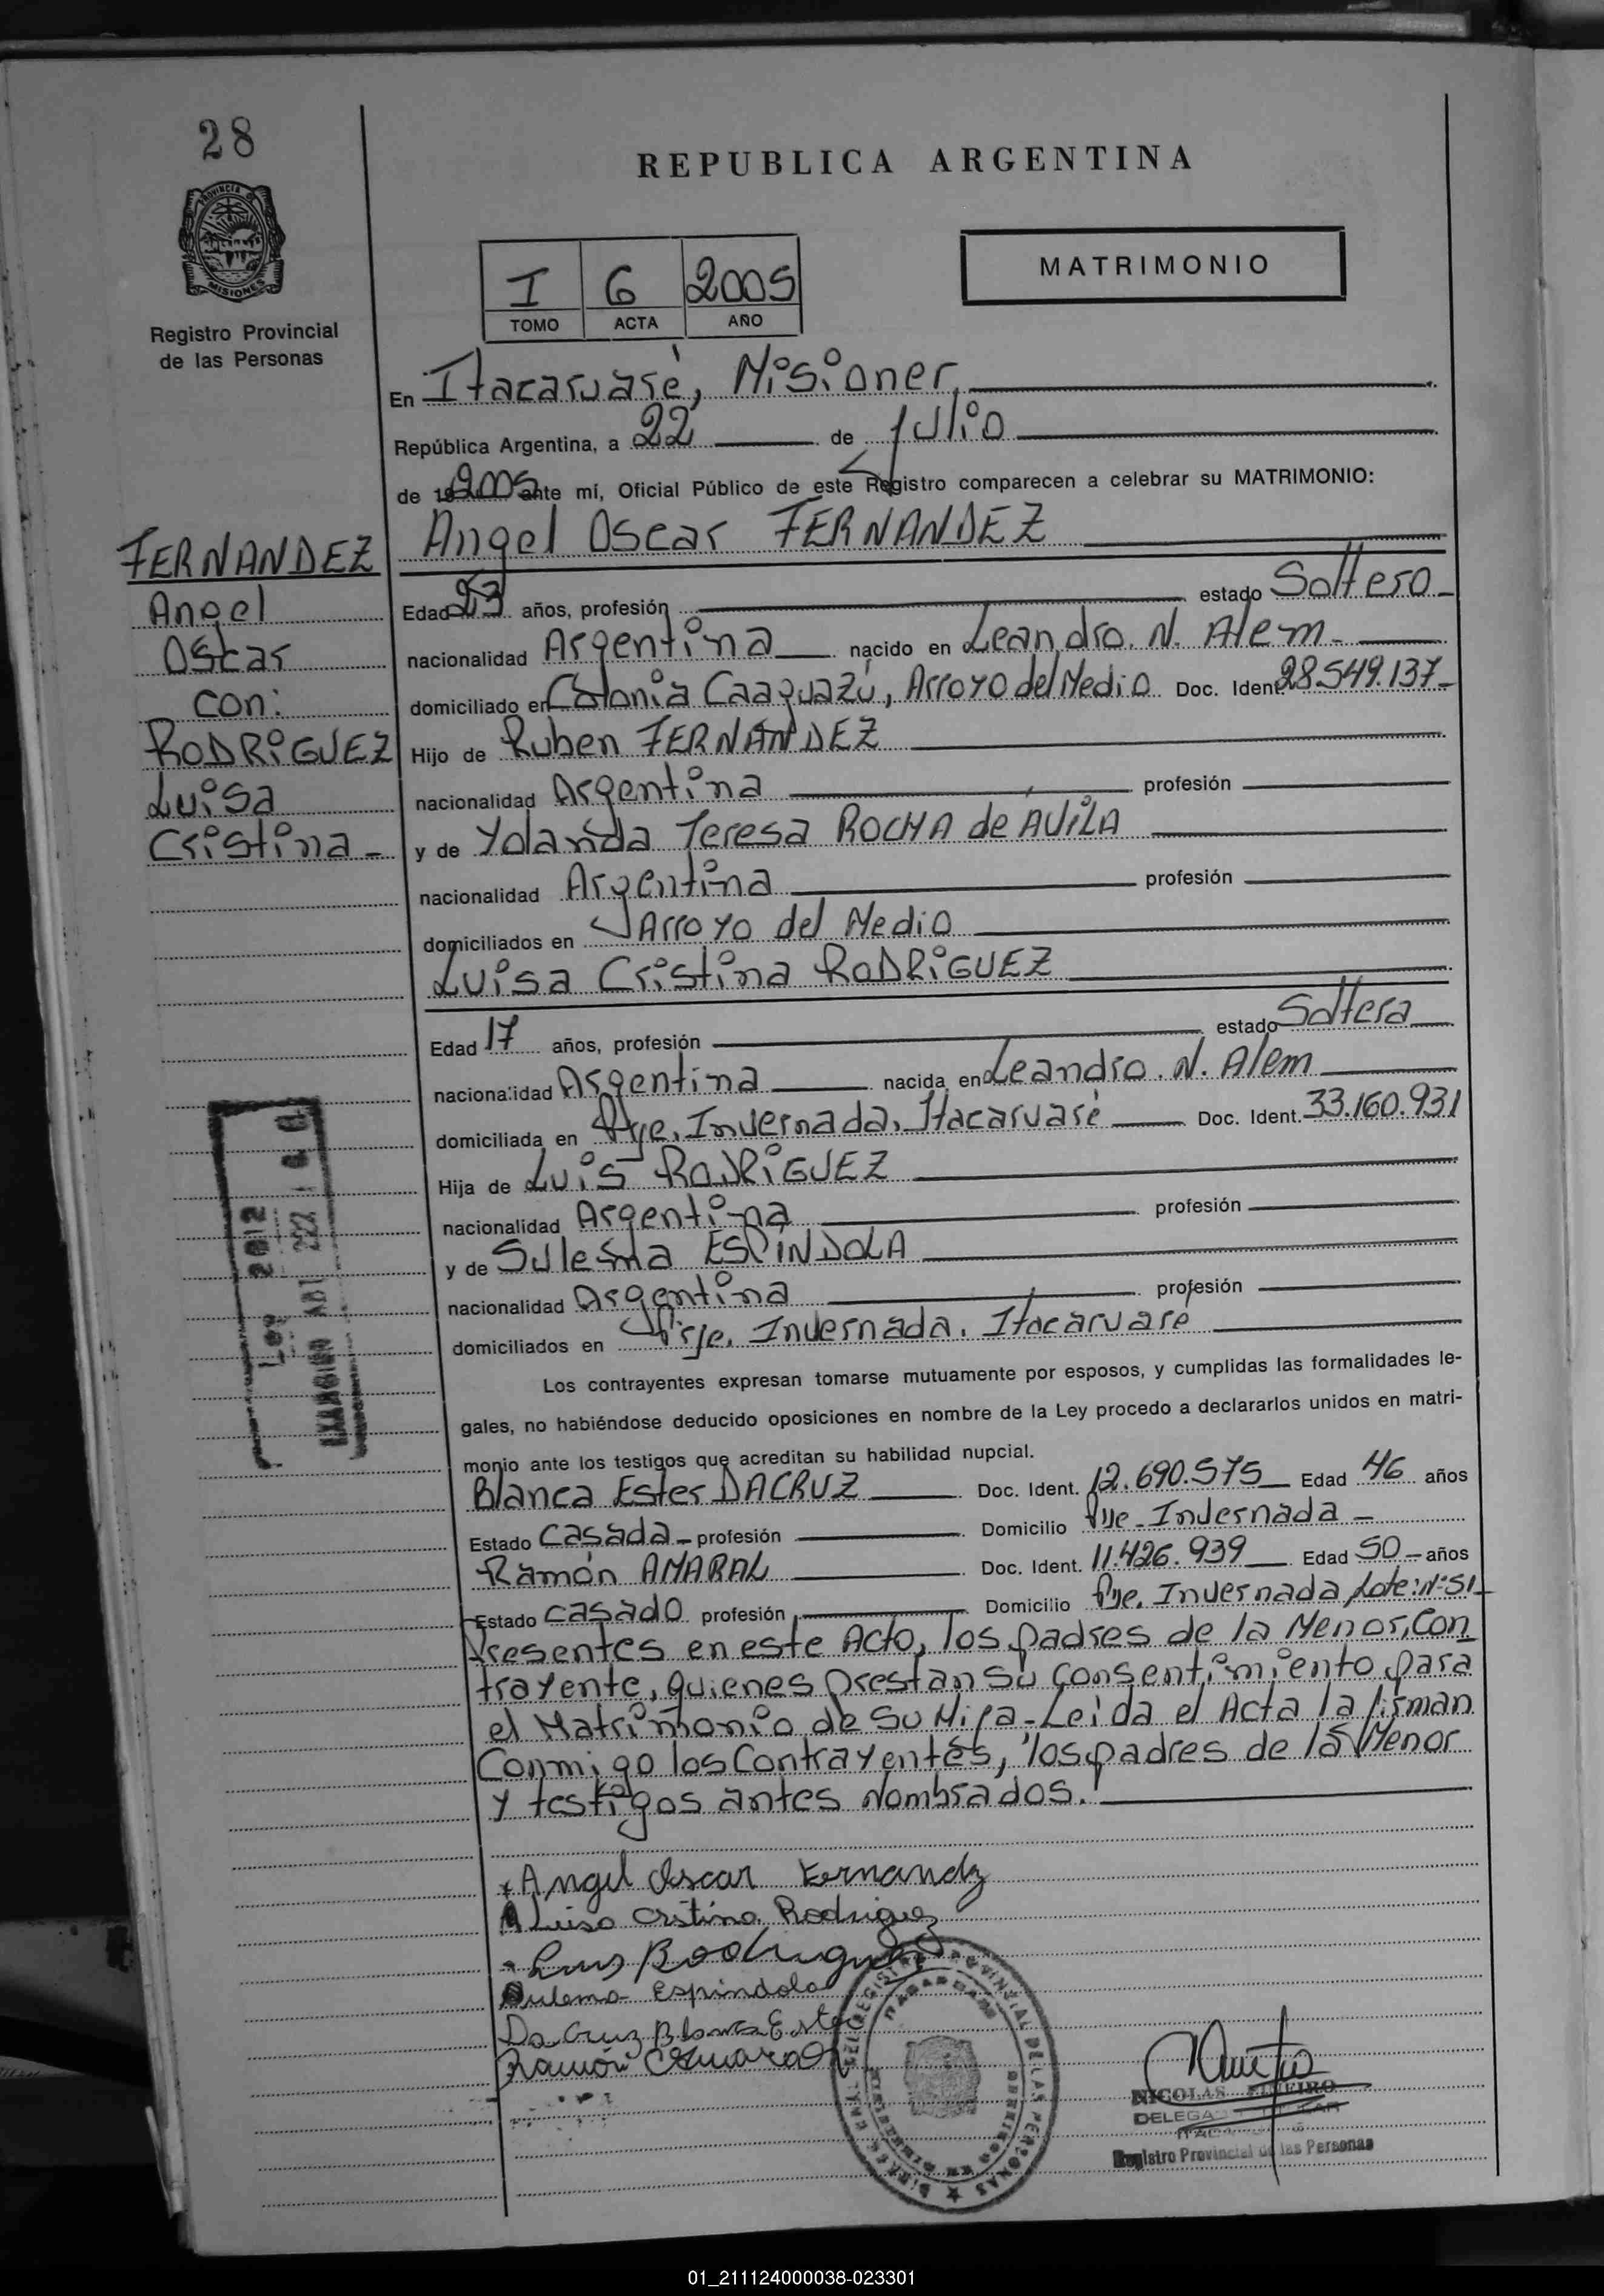 28
REPUBLICA ARGENTINA
PROVINCIA DE
MISIONES
Registro Provincial
de las Personas
I 6 2005
TOMO ACTA AÑO
MATRIMONIO
En Itacaruaré, Misioner,
República Argentina, a 22 de julio
de 19 2005 ante mí, Oficial Público de este Registro comparecen a celebrar su MATRIMONIO:
FERNANDEZ
Angel
Oscar
con:
RODRIGUEZ
Luisa
Cristina -
Angel Oscar FERNANDEZ
Edad 23 años, profesión estado Soltero
nacionalidad Argentina nacido en Leandro. N. Alem-
domiciliado en Colonia Caaguazú, Arroyo del Medio Doc. Ident. 28.549.137-
Hijo de Ruben FERNANDEZ
nacionalidad Argentina profesión
y de Yolanda Teresa ROCHA de AVILA
nacionalidad Argentina profesión
domiciliados en Arroyo del Medio
Luisa Cristina RODRIGUEZ
Edad 17 años, profesión estado Soltera
nacionalidad Argentina nacida en Leandro. N. Alem
domiciliada en Pje. Invernada, Itacaruaré Doc. Ident. 33.160.931
Hija de Luis RODRIGUEZ
nacionalidad Argentina profesión
y de Sulema ESPINDOLA
nacionalidad Argentina profesión
domiciliados en Pje. Invernada, Itacaruaré
Ley
Los contrayentes expresan tomarse mutuamente por esposos, y cumplidas las formalidades le-
gales, no habiéndose deducido oposiciones en nombre de la Ley procedo a declararlos unidos en matri-
monio ante los testigos que acreditan su habilidad nupcial.
Blanca Ester DACRUZ Doc. Ident. 12.690.575 Edad 46 años
Estado Casada - profesión Domicilio Pje - Invernada -
Ramón AMARAL Doc. Ident. 11.426.939 Edad 50 - años
Estado casado profesión Domicilio Pje. Invernada, Lote: Nº 51
Presentes en este Acto, los padres de la Menor, Con
trayente, quienes prestan su consentimiento para
el Matrimonio de su Hija - Leida el Acta la firman
Conmigo los Contrayentes, los padres de la Menor
y testigos antes Nombrados.
Angel Oscar Fernandz
Luisa Cristina Rodriguez
Luis Rodriguez
Sulema Espindola
Da Cruz Blanca Ester
Ramón Amaral
REGISTRO PROVINCIAL DE LAS PERSONAS
NICOLAS PIÑEIRO
Registro Provincial de las Personas
01_211124000038-023301